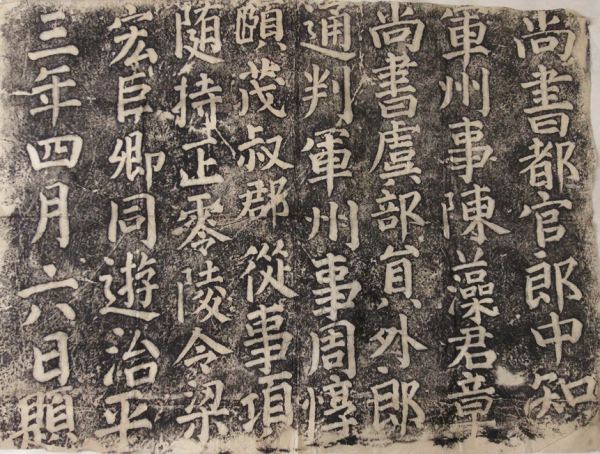 尚書都官郎中知
軍州事陳藻君章
尚書虞部員外郎
通判軍州事周惇
頤茂叔郡從事項
随持正零陵令梁
宏巨卿同遊治平
三年四月六日題